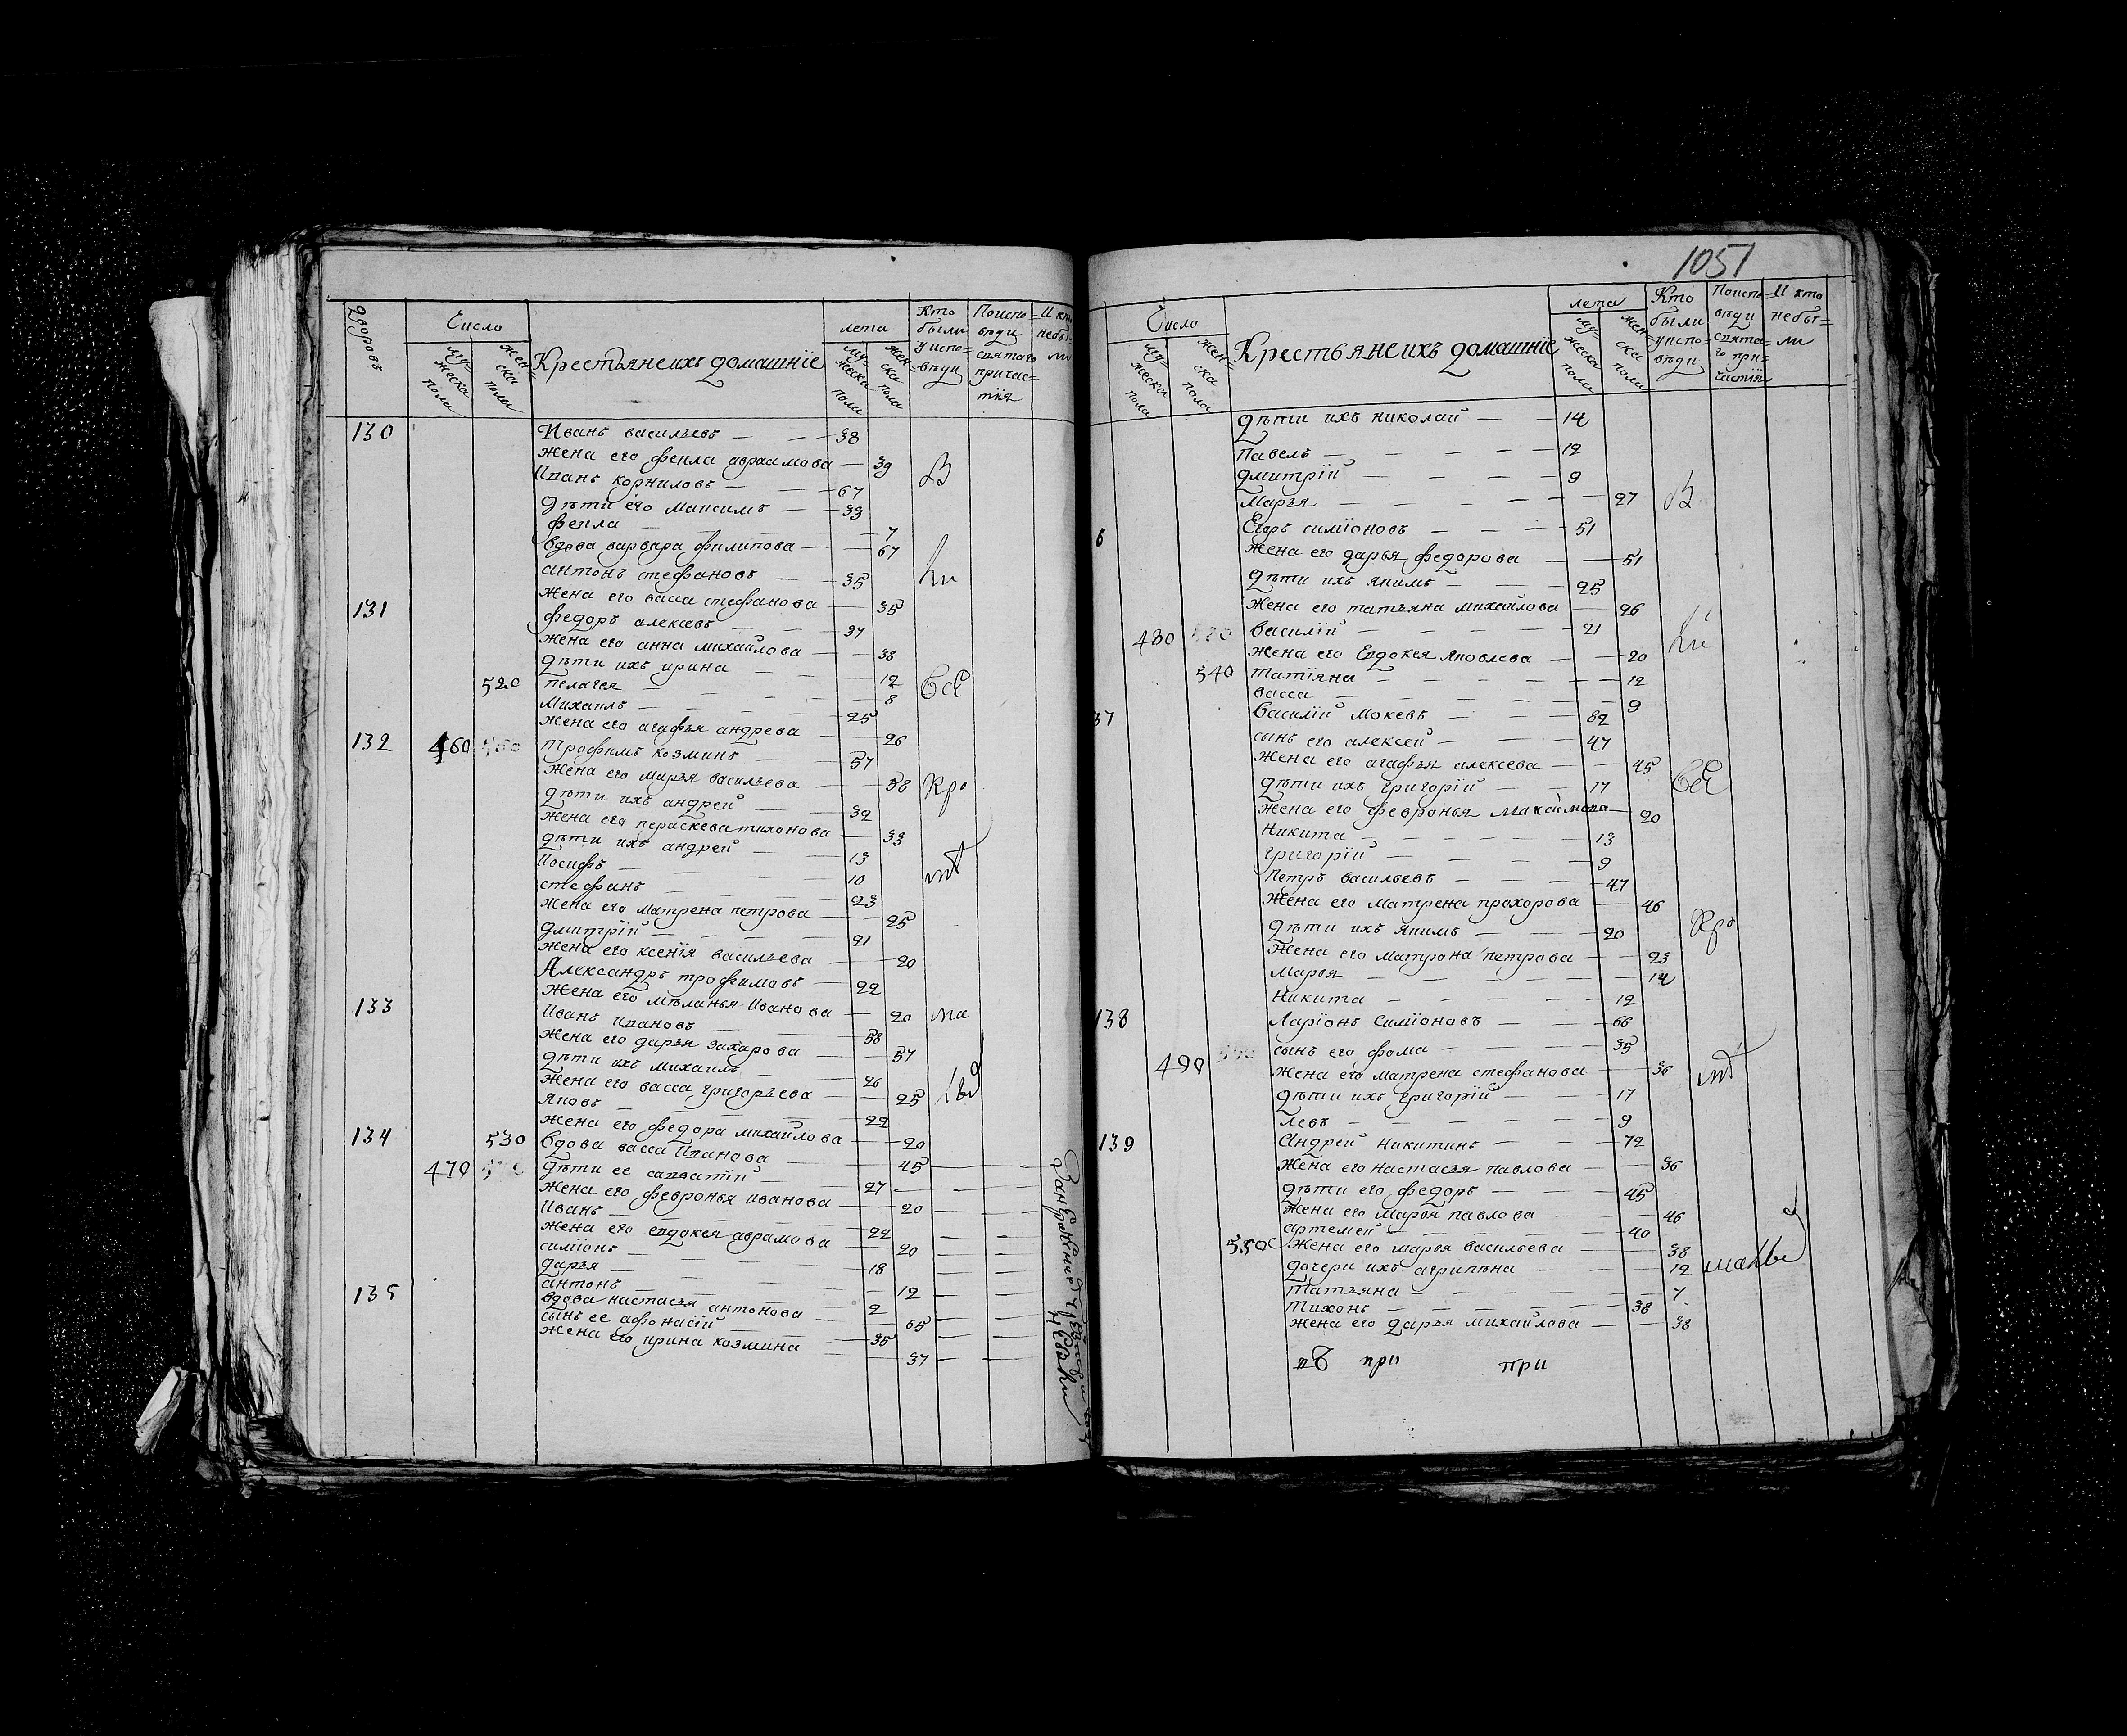 1051
дворовъ Число Крестьяне ихъ домашнїе лета Кто были у испо= Поиспо= И кто
мужеска пола женска пола мужеска пола женска пола веди веди святаго причастїя небыли
130 Иванъ васильевъ — 38
жена его фекла авраамова — 39
Иванъ корниловъ — 67
дѣти его максимъ — 33
фекла — 7
вдова варвара филипова — 67
антонъ стефановъ — 35
жена его васса стефанова — 35
131 федоръ алексевъ — 37
жена его анна михайлова — 38
дѣти ихъ ирина — 12
520 пелагея — 8
Михаилъ — 25
жена его агафья андрева — 26
132 460 трофимъ козминъ — 57
жена его марья васильева — 58
дѣти ихъ андрей — 32
жена его параскева тихонова — 33
дѣти ихъ андрей — 13
Иосифъ — 10
стефанъ — 23
жена его матрена петрова — 25
дмитрїй — 21
жена его ксенїя васильева — 20
Александръ трофимовъ — 22
жена его мѣланья Иванова — 20
133 Иванъ Ивановъ — 58
жена его дарья захарова — 57
дѣти ихъ михаилъ — 26
жена его васса григорьева — 25
Яковъ — 22
жена его федора михайлова — 20
134 530 вдова васса Иванова — 45
470 дѣти ее савватїй — 27
жена его февронья иванова — 20
Иванъ — 22
жена его евдокея аврамова — 20
симїонъ — 18
дарья — 12
антонъ — 2
135 вдова настасья антонова — 65
сынъ ее афонасїй — 35
жена его ирина козмина — 37
Число Крестьяне ихъ домашнїе лета Кто были у испо= Поиспо= И кто
мужеска пола женска пола мужеска пола женска пола веди веди святаго причастїя небыли
дѣти ихъ николай — 14
Павелъ — 12
дмитрїй — 9
Марья — 27
6 Егоръ симїоновъ — 51
жена его дарья федорова — 51
дѣти ихъ якимъ — 25
жена его татьяна михайлова — 26
480 василїй — 21
жена его Евдокея яковлева — 20
540 татїяна — 12
васса — 9
37 василїй мокевъ — 82
сынъ его алексей — 47
жена его агафья алексева — 45
дѣти ихъ григорїй — 17
жена его февронья максимова — 20
Никита — 13
григорїй — 9
Петръ васильевъ — 47
жена его матрена прохорова — 46
дѣти ихъ якимъ — 20
жена его матрона петрова — 23
марья — 14
никита — 12
138 Ларїонъ симїоновъ — 66
490 сынъ его фома — 35
жена его матрена стефанова — 36
дѣти ихъ григорїй — 17
левъ — 9
139 андрей никитинъ — 72
жена его настасья павлова — 36
дѣти его федоръ — 45
жена его марья павлова — 46
артемей — 40
550 жена его марья васильева — 38
дочери ихъ агрипѣна — 12
татьяна — 7
тихонъ — 38
жена его дарья михайлова — 38
при при